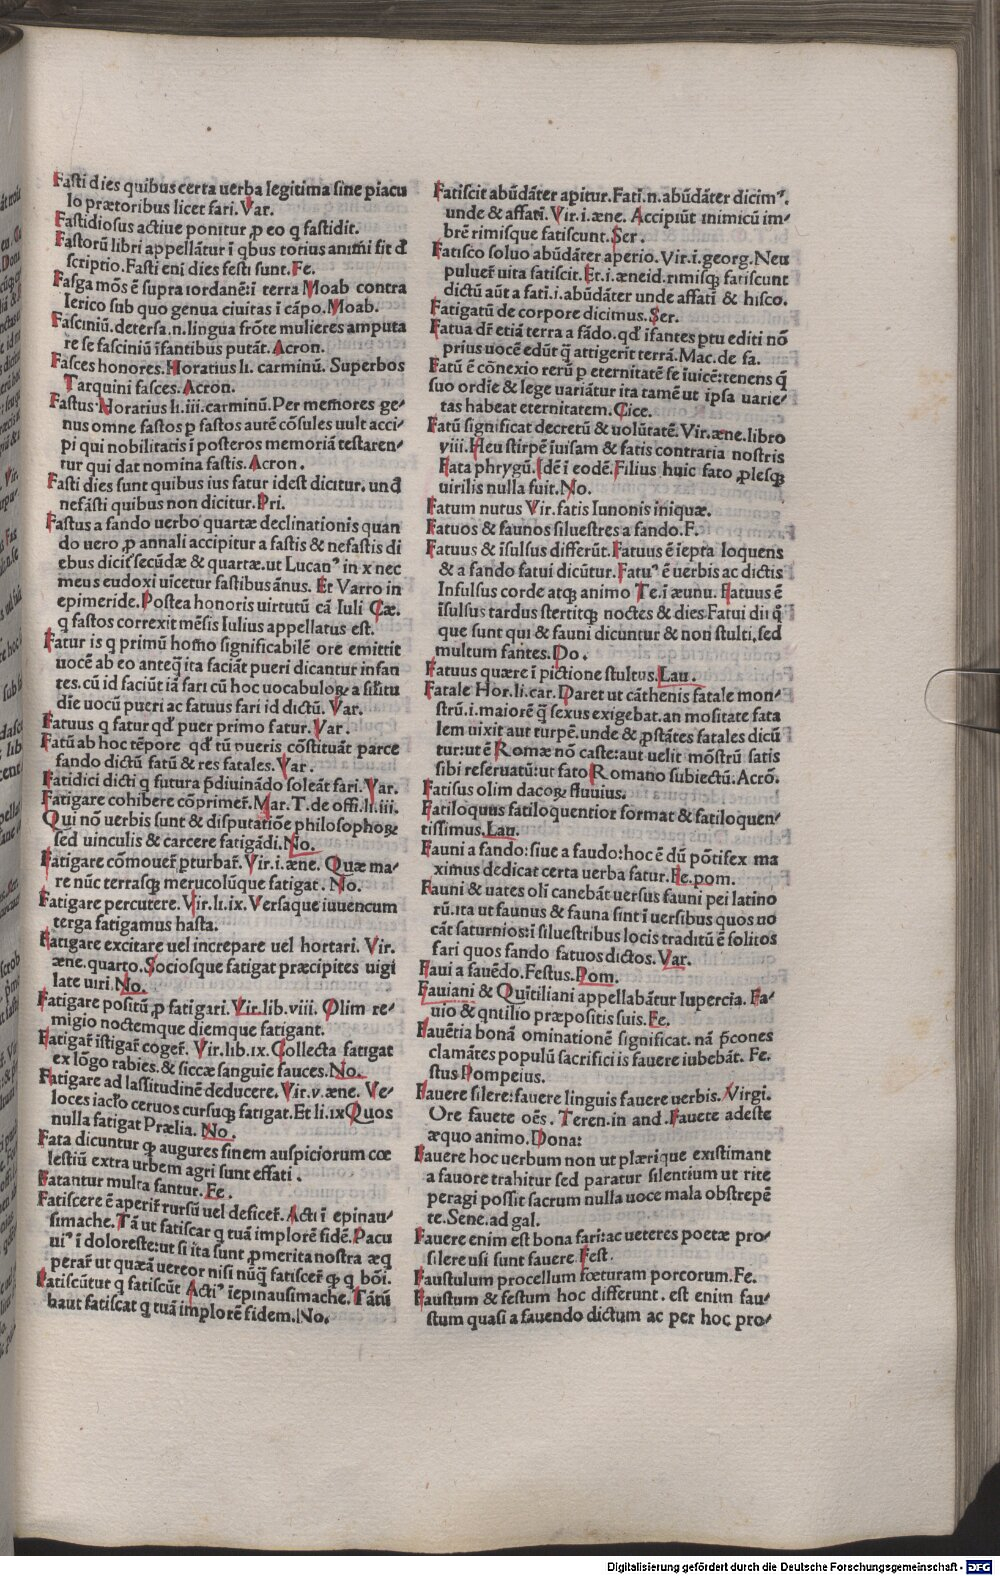 Fasti dies quibus certa uerba legitima sine piacu
lo prætoribus licet fari. Var.
Fastidiosus actiue ponitur ꝓ eo q fastidit.
Fastorū libri appellātur ī qbus totius anīmi fit đ
scriptio. Fasti enī dies festi sunt. Fe.
Fasga mōs ē supra iordanē:ī terra Moab contra
Ierico sub quo genua ciuitas ī cāpo. Moab.
Fasciniū. detersa. n. lingua frōte mulieres amputa
re se fasciniū īfantibus putāt. Acron.
Fasces honores. Horatius li. carminū. Superbos
Tarquini fasces. Acron.
Fastus. Noratius li. iii. carminū. Per memores ge/
nus omne fastos ꝑ fastos autē cōsules uult acci/
pi qui nobilitatis ī posteros memoriā testaren/
tur qui dat nomina fastis. Acron.
Fasti dies sunt quibus ius fatur idest dicitur. unđ
nefāsti quibus non dicitur. Pri.
Fastus a fando uerbo quartæ declinationis quan
do uero ꝓ annali accipitur a fastis & nefastis di
ebus dicit̄ secūdæ & quartæ. ut Lucanꝰ in x nec
meus eudoxi uīcetur fastibus ānus. Et Varro in
epimeride. Postea honoris uirtutū cā Iuli Cæ.
q fastos correxit mēsis Iulius appellatus est.
Fatur is q primū homo significabilē ore emittit
uocē ab eo anteq̄ ita faciāt pueri dicantur infan
tes. cū id faciūt iā fari cū hoc uocabuloꝝ a sīlitu
dīe uocū pueri ac fatuus fari id dictū. Var.
Fatuus q fatur qđ puer primo fatur. Var.
Fatū ab hoc tēpore qđ tū pueris cōstituāt parce
fando dictū fatū & res fatales. Var.
Fatidici dicti q futura p̄diuināndo soleāt fari. Var.
Fatigare cohibere cōprimer̄. Mar. T. de offi. li. iii.
Qui nō uerbis sunt & disputatiōe philosophoꝝ
sed uinculis & carcere fatigādi. No.
Fatigare cōmouer̄ ꝑturbar̄. Vir. i. æne. Quæ ma/
re nūc terrasqꝫ merucolūque fatigat. No.
Fatigare percutere. Vir. li. ix. Versaque iuuencum
terga fatigamus hasta.
Fatigare excitare uel increpare uel hortari. Vir.
æne. quarto. Sociosque fatigat præcipites uigi
late uiri. No.
Fatigare positū ꝓ fatigari. Vir. lib. viii. Olim re/
migio noctemque diemque fatigant.
Fatigar̄ īstigar̄ coger̄. Vir. lib. ix. Collecta fatigat
ex lōgo rabies. & siccæ sanguie fauces. No.
Fatigare ad lassitudinē deducere. Vir. v. æne. Ve/
loces iacl̄o ceruos cursuqꝫ fatigat. Et li. ix Quos
nulla fatigat Prælia. No.
Fata dicuntur qꝫ augures finem auspiciorum cœ
lestiū extra urbem agri sunt effati.
Fatantur multa fantur. Fe.
Fatiscere ē aperir̄ rursū uel deficer̄. Acti ī epinau/
simache. Tā ut fatiscar q tuā implorē fidē. Pacu
uiꝰ ī doloreste: ut si ita sunt ꝓmerita nostra æq
perar̄ ut quæā uereor nisi nūq̄ fatiscer̄ qꝫ q bōi.
Fatiscūtut q fatiscūt Actiꝰ īepinausimache. Tātū
haut fatiscat q tuā implorē fidem. No.
Fatiscit abūdāter apitur. Fati. n. abūdāter dicimꝰ.
unde & affati. Vir. i. æne. Accipiūt inimicū im/
brē rimisque fatiscunt. Ser.
Fatisco soluo abūdāter aperio. Vir. i. georg. Neu
puluer̄ uita fatiscit. Et. i. æneid. rimisqꝫ fatiscunt
dictū aūt a fati. i. abūdāter unde affatī & hisco.
Fatigatū de corpore dicimus. Ser.
Fatua dr̄ etiā terra a fādo. qđ ifantes ptu editi nō
prius uocē edūt q̄ attigerit terrā. Mac. de sa.
Fatū ē cōnexio rerū ꝑ eternitatē se īuicē: tenens q̄
suo ordīe & lege uariātur ita tamē ut ipsa uarie/
tas habeat eternitatem. Cice.
Fatū significat decretū & uolūtatē. Vir. æne. libro
viii. Heu stirpē īuisam & fatis contraria nostris
Fata phrygū. Idē ī eodē. Filius huic fato ꝓlesqꝫ
uirilis nulla fuit. No.
Fatum nutus Vir. fatis Iunonis iniquæ.
Fatuos & faunos siluestres a fando. F.
Fatuus & īsulsus differūt. Fatuus ē īepta loquens
& a fando fatui dicūtur. Fatuꝰ ē uerbis ac dictis
Infulsus corde atqꝫ animo Te. i æunu. Fatuus ē
īsulsus tardus stertitqꝫ noctes & dies Fatui dii q̄
que sunt qui & fauni dicuntur & non stulti, sed
multum fantes. Do.
Fatuus quære ī pictione stultus. Lau.
Fatale Hor. li. car. Daret ut cāthenis fatale mon/
strū. i. maiorē q̄ sexus exigebat. an mositate fata
lem uixit aut turpē. unde & ꝓstātes fatales dicū
tur: ut ē Romæ nō caste: aut uelit mōstrū satis
sibi reseruatū: ut fato Romano subiectū. Acrō.
Fatisus olim dacoꝝ ffuuius.
Fatiloquus fatiloquentior format & fatiloquen/
tissimus. Lau.
Fauni a fando: siue a faudo: hoc ē dū pōtifex ma
ximus dedicat certa uerba fatur. Fe. pom.
Fauni & uates oli canebāt uersus fauni pei latino
rū. ita ut faunus & fauna sint ī uersibus quos uo
cāt saturnios: ī siluestribus locis traditū ē solitos
fari quos fando fatuos dictos. Var.
Faui a fauēdo. Festus. Pom.
Fauiani & Quītiliani appellabātur lupercia. Fa/
uio & qntilio præpositis suis. Fe.
Fauētia bonā ominationē significat. nā p̄cones
clamātes populū sacrificiis fauere iubebāt. Fe.
stus Pompeius.
Fauere silere: fauere linguis fauere uerbis. Virgi.
Ore fauete oēs. Teren. in and. Fauete adeste
æquo animo. Dona:
Fauere hoc uerbum non ut plærique existimant
a fauore trahitur sed paratur silentium ut rite
peragi possit sacrum nulla uoce mala obstrepē
te. Sene. ad gal.
Fauere enim est bona fari: ac ueteres poetæ pro/
silere usi sunt fauere. Fest.
Faustulum procellum fœturam porcorum. Fe.
Faustum & festum hoc differunt. est enim fau/
stum quasi a fauendo dictum ac per hoc pro/
Digitalisierung gefördert durch die Deutsche Forschungsgemeinschaft - DFG